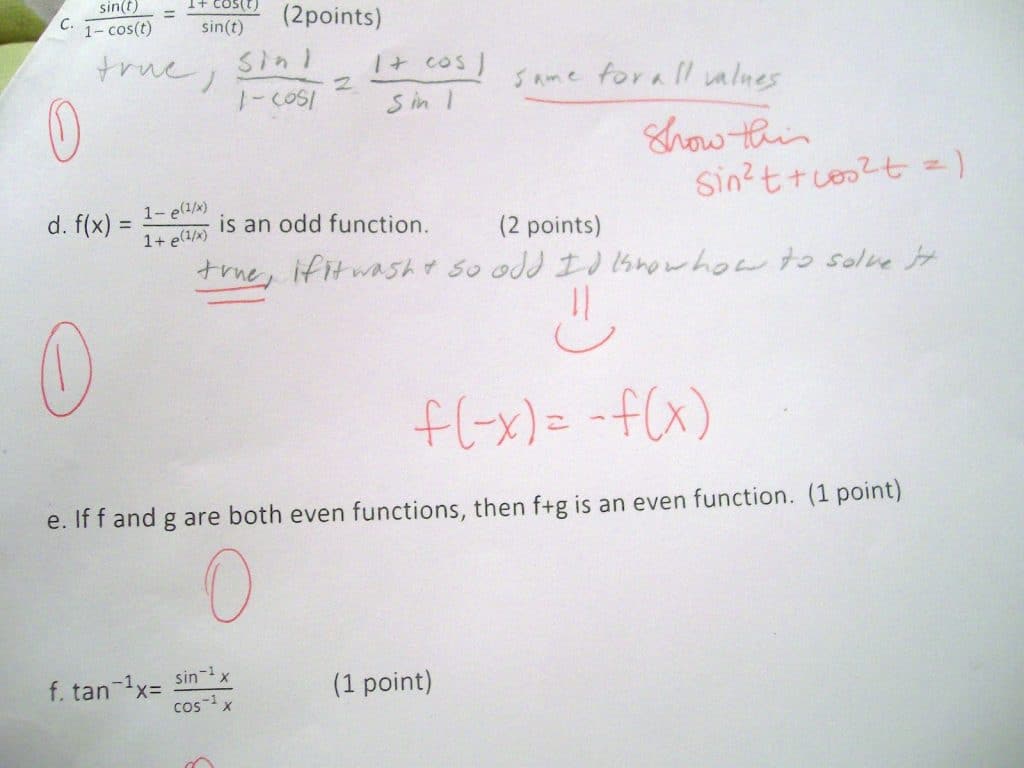 c. sin(t)/1- cos(t) = 1+ cos(t)/sin(t) (2points)
true, sin 1/1-cos1 = 1+ cos 1/sin 1 same for all values
1
Show this
sin²t + cos²t = 1
d. f(x) = 1- e^(1/x)/1+ e^(1/x) is an odd function. (2 points)
true, if it wasnt so odd Id know how to solve it
1
f(-x) = -f(x)
e. If f and g are both even functions, then f+g is an even function. (1 point)
0
f. tan⁻¹x= sin⁻¹ x/cos⁻¹ x (1 point)